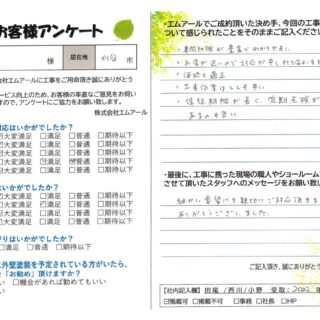 お客様アンケート
様 居住地 刈谷 市
会社エムアールに工事をご用命頂き誠にありがとう
ービス向上のため、お客様の率直なご意見をお伺い
すので、アンケートにご協力をお願い致します。
株式会社エムアール
対応はいかがでしたか?
大変満足 □満足 □普通 □期待以下
大変満足 □満足 □普通 □期待以下
大変満足 □満足 □普通 □期待以下
大変満足 □満足 普通 □期待以下
大変満足 □満足 □普通 □期待以下
はいかがでしたか?
大変満足 □満足 □普通 □期待以下
大変満足 □満足 □普通 □期待以下
大変満足 □満足 □普通 □期待以下
がりはいかがでしたか?
足 □満足 □普通 □期待以下
に外壁塗装を予定されている方がいたら、
を「お勧め」頂けますか?
い □機会があれば勧めてもいい
い
・エムアールでご成約頂いた決め手、今回の工事に
ついて感じられたことをそのままご記入ください。
・専門知識が豊富でわかりやすい
・価格も適正
・工事作業はとても早い
・保証期間が長くて、定期点検が
あるのも良い。
・最後に、工事に携った現場の職人やショールーム
させて頂いたスタッフへのメッセージをお願い致し
ありがとうございました。
ご記入頂き、誠にありがとう
【社内記入欄】 田尾 /西川/小野 受取: 2022 年
掲載可 □掲載不可 □事務 □社長 □HP